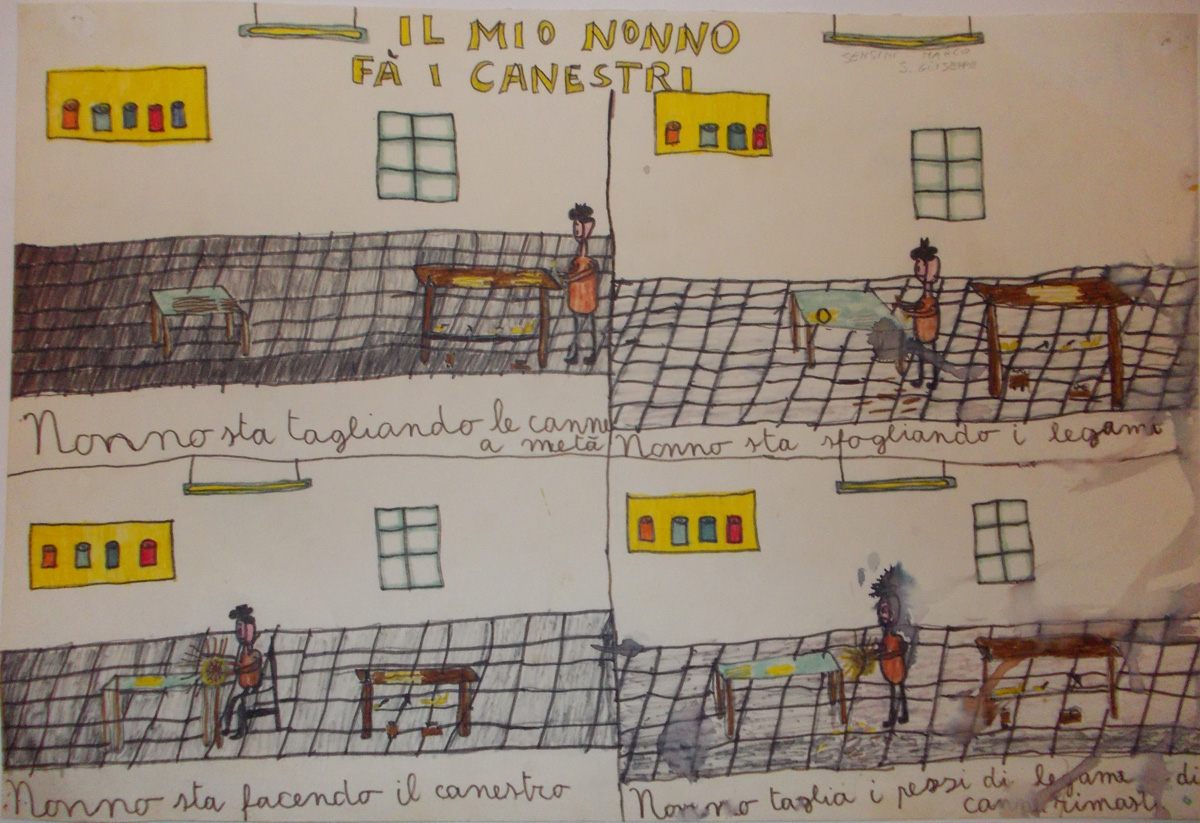 IL MIO NONNO
FÀ I CANESTRI
SENSINI MARCO
S. GIUSEPPE
Nonno sta tagliando le canne
a metà
Nonno sta sfogliando i legami
Nonno sta facendo il canestro
Nonno taglia i pezzi di legame di